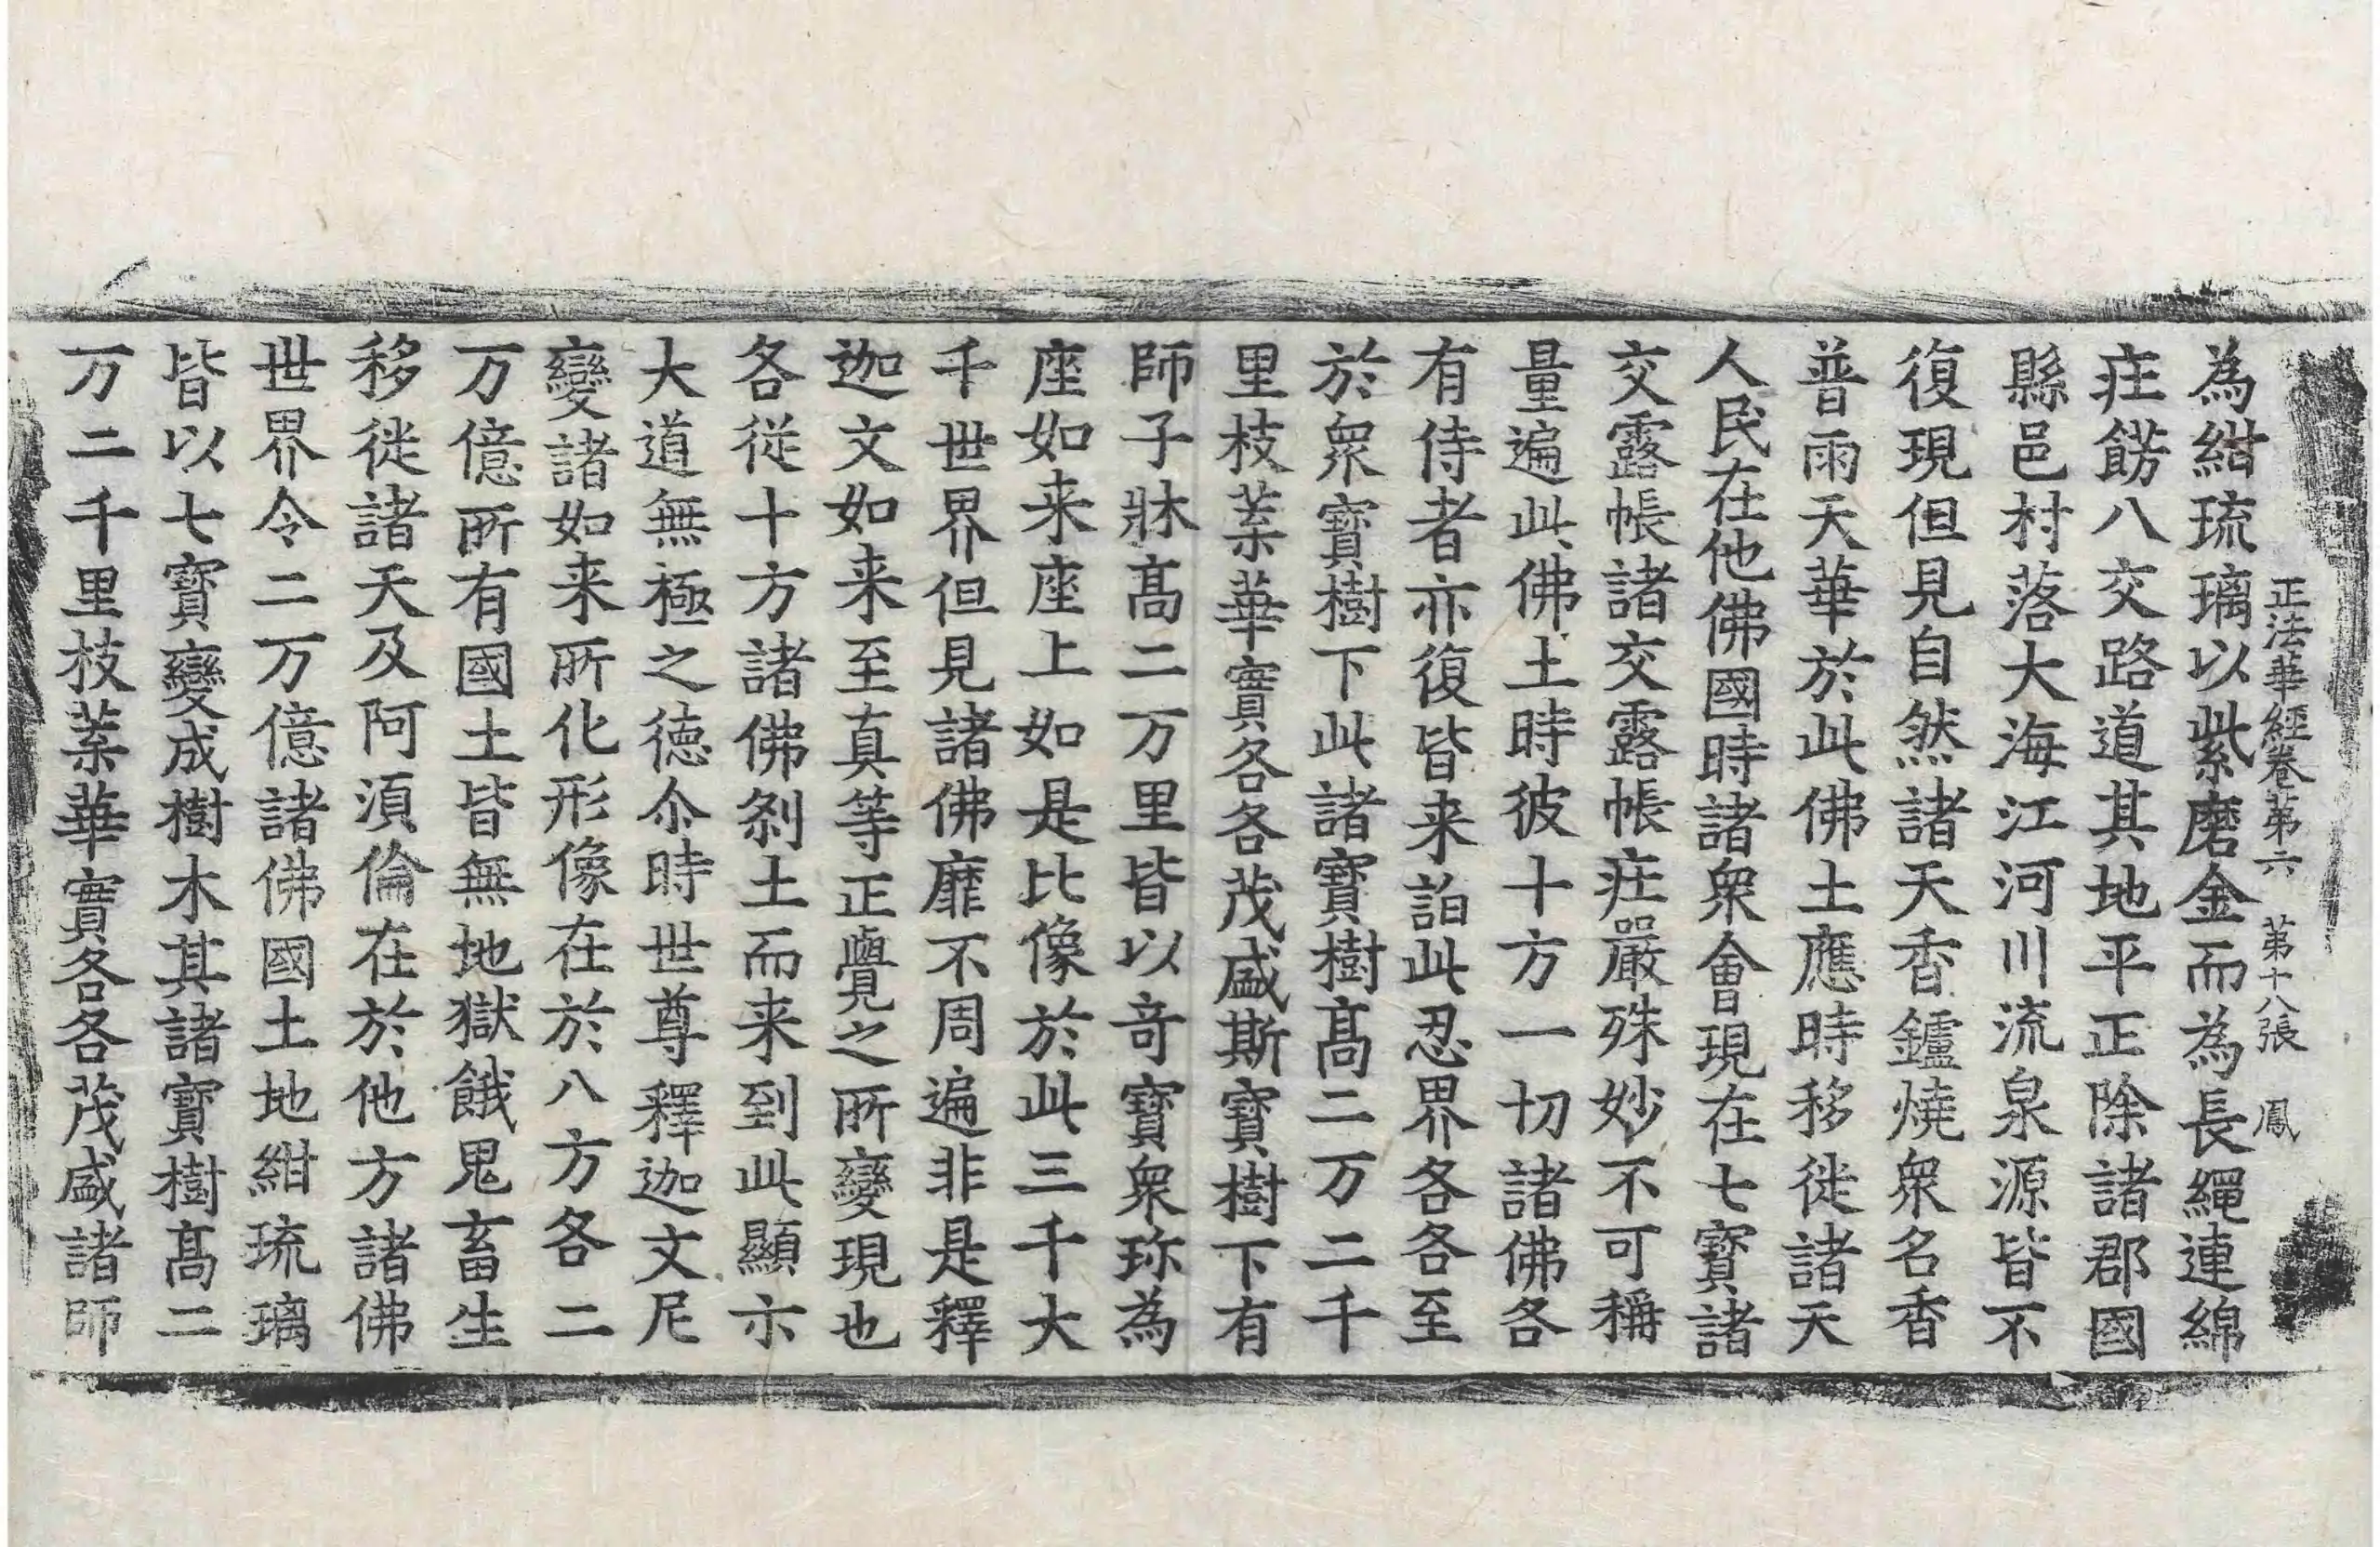 正法華經卷第六 第十八張 鳳
為紺琉璃以紫磨金而為長繩連綿
庄餝八交路道其地平正除諸郡國
縣邑村落大海江河川流泉源皆不
復現但見自然諸天香鑪燒衆名香
普雨天華於此佛土應時移徙諸天
人民在他佛國時諸衆會現在七寶諸
交露帳諸交露帳庄嚴殊妙不可稱
量遍此佛土時彼十方一切諸佛各
有侍者亦復皆来詣此忍界各各至
於衆寶樹下此諸寶樹髙二万二千
里枝葉華實各各茂盛斯寶樹下有
師子牀髙二万里皆以竒寶衆珎為
座如来座上如是比像於此三千大
千世界但見諸佛靡不周遍非是釋
迦文如来至真等正覺之所變現也
各従十方諸佛刹土而来到此顯示
大道無極之徳尒時世尊釋迦文尼
變諸如来所化形像在於八方各二
万億所有國土皆無地獄餓鬼畜生
移徙諸天及阿湏倫在於他方諸佛
世界令二万億諸佛國土地紺琉璃
皆以七寶變成樹木其諸寶樹髙二
万二千里枝葉華實各各茂盛諸師